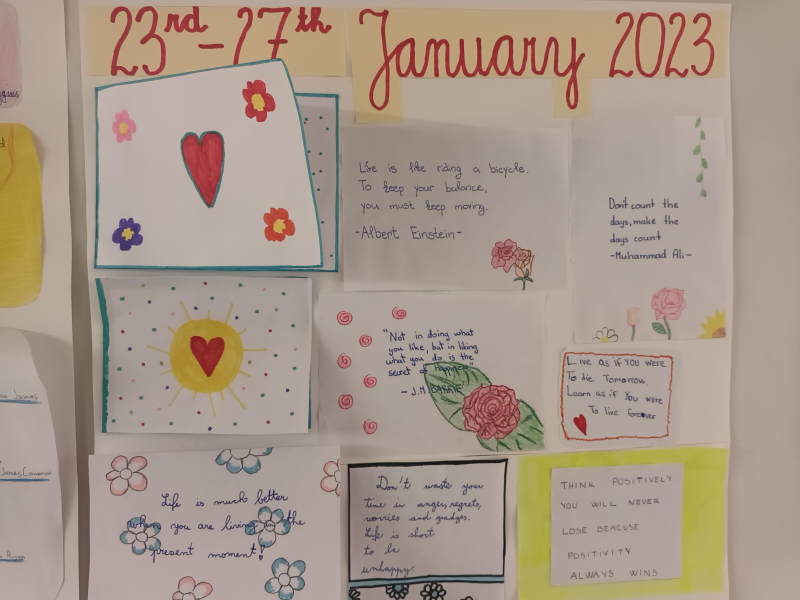 23rd - 27th January 2023
Life is like riding a bicycle.
To keep your balance,
you must keep moving.
-Albert Einstein-
Don't count the
days, make the
days count
-Muhammad Ali-
"Not in doing what
you like, but in liking
what you do is the
secret of happiness"
- J.M. BARRIE
Live as if you were
To die Tomorrow
Learn as if You were
To live forever
Life is much better
when you are living in the
present moment!
Don't waste your
time in anger, regrets,
worries and grudges.
Life is short
to be
unhappy.
THINK POSITIVELY
YOU WILL NEVER
LOSE BEACUSE
POSITIVITY
ALWAYS WINS.
James Cameron